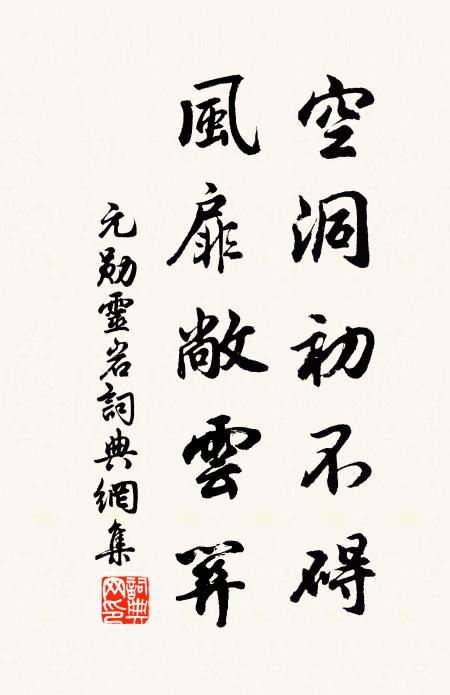 空洞初不碍
風扉敞雲
元勛靈岩詞典網集
詞典网印